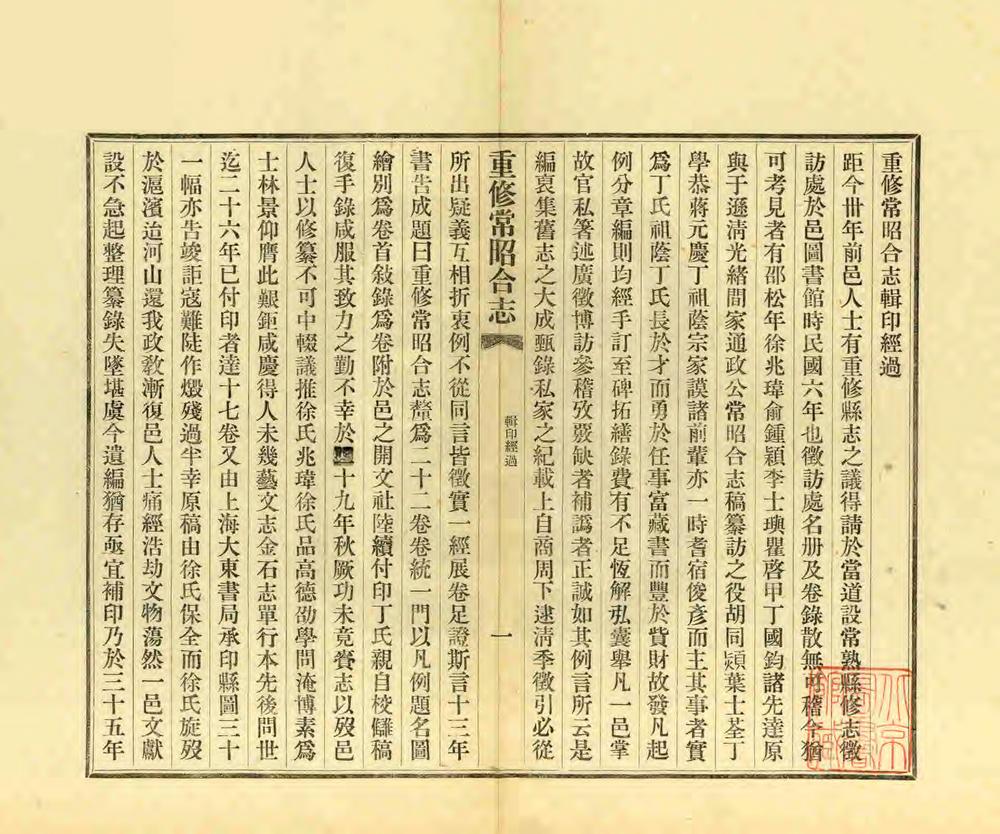 重修常昭合志輯印經過
距今卅年前邑人士有重修縣志之議得請於當道設常熟縣修志徵
訪處於邑圖書館時民國六年也徵訪處名册及卷錄散無可稽今猶
可考見者有邵松年徐兆瑋俞鍾穎李士瓆瞿啓甲丁國鈞諸先達原
與于遜清光緒間家通政公常昭合志稿纂訪之役胡同潁葉士荃丁
學恭蔣元慶丁祖蔭宗家謨諸前輩亦一時耆宿俊彥而主其事者實
爲丁氏祖蔭丁氏長於才而勇於任事富藏書而豐於貲財故發凡起
例分章編則均經手訂至碑拓繕錄費有不足恆解私囊舉凡一邑掌
故官私箸述廣徵博訪參稽攷覈缺者補譌者正誠如其例言所云是
編裒集舊志之大成甄錄私家之紀載上自商周下逮清季徵引必從
重修常昭合志
輯印經過
一
所出疑義互相折衷例不從同言皆徵實一經展卷足證斯言十三年
書告成題曰重修常昭合志釐爲二十二卷卷統一門以凡例題名圖
繪別爲卷首敍錄爲卷附於邑之開文社陸續付印丁氏親自校讎稿
復手錄咸服其致力之勤不幸於十九年秋厥功未竟賫志以歿邑
人士以修纂不可中輟議推徐氏兆瑋徐氏品高德劭學問淹博素爲
士林景仰膺此艱鉅咸慶得人未幾藝文志金石志單行本先後問世
迄二十六年已付印者達十七卷又由上海大東書局承印縣圖三十
一幅亦告竣詎寇難陡作燬殘過半幸原稿由徐氏保全而徐氏旋歿
於滬濱迨河山還我政敎漸復邑人士痛經浩劫文物蕩然一邑文獻
設不急起整理纂錄失墜堪虞今遺編猶存亟宜補印乃於三十五年